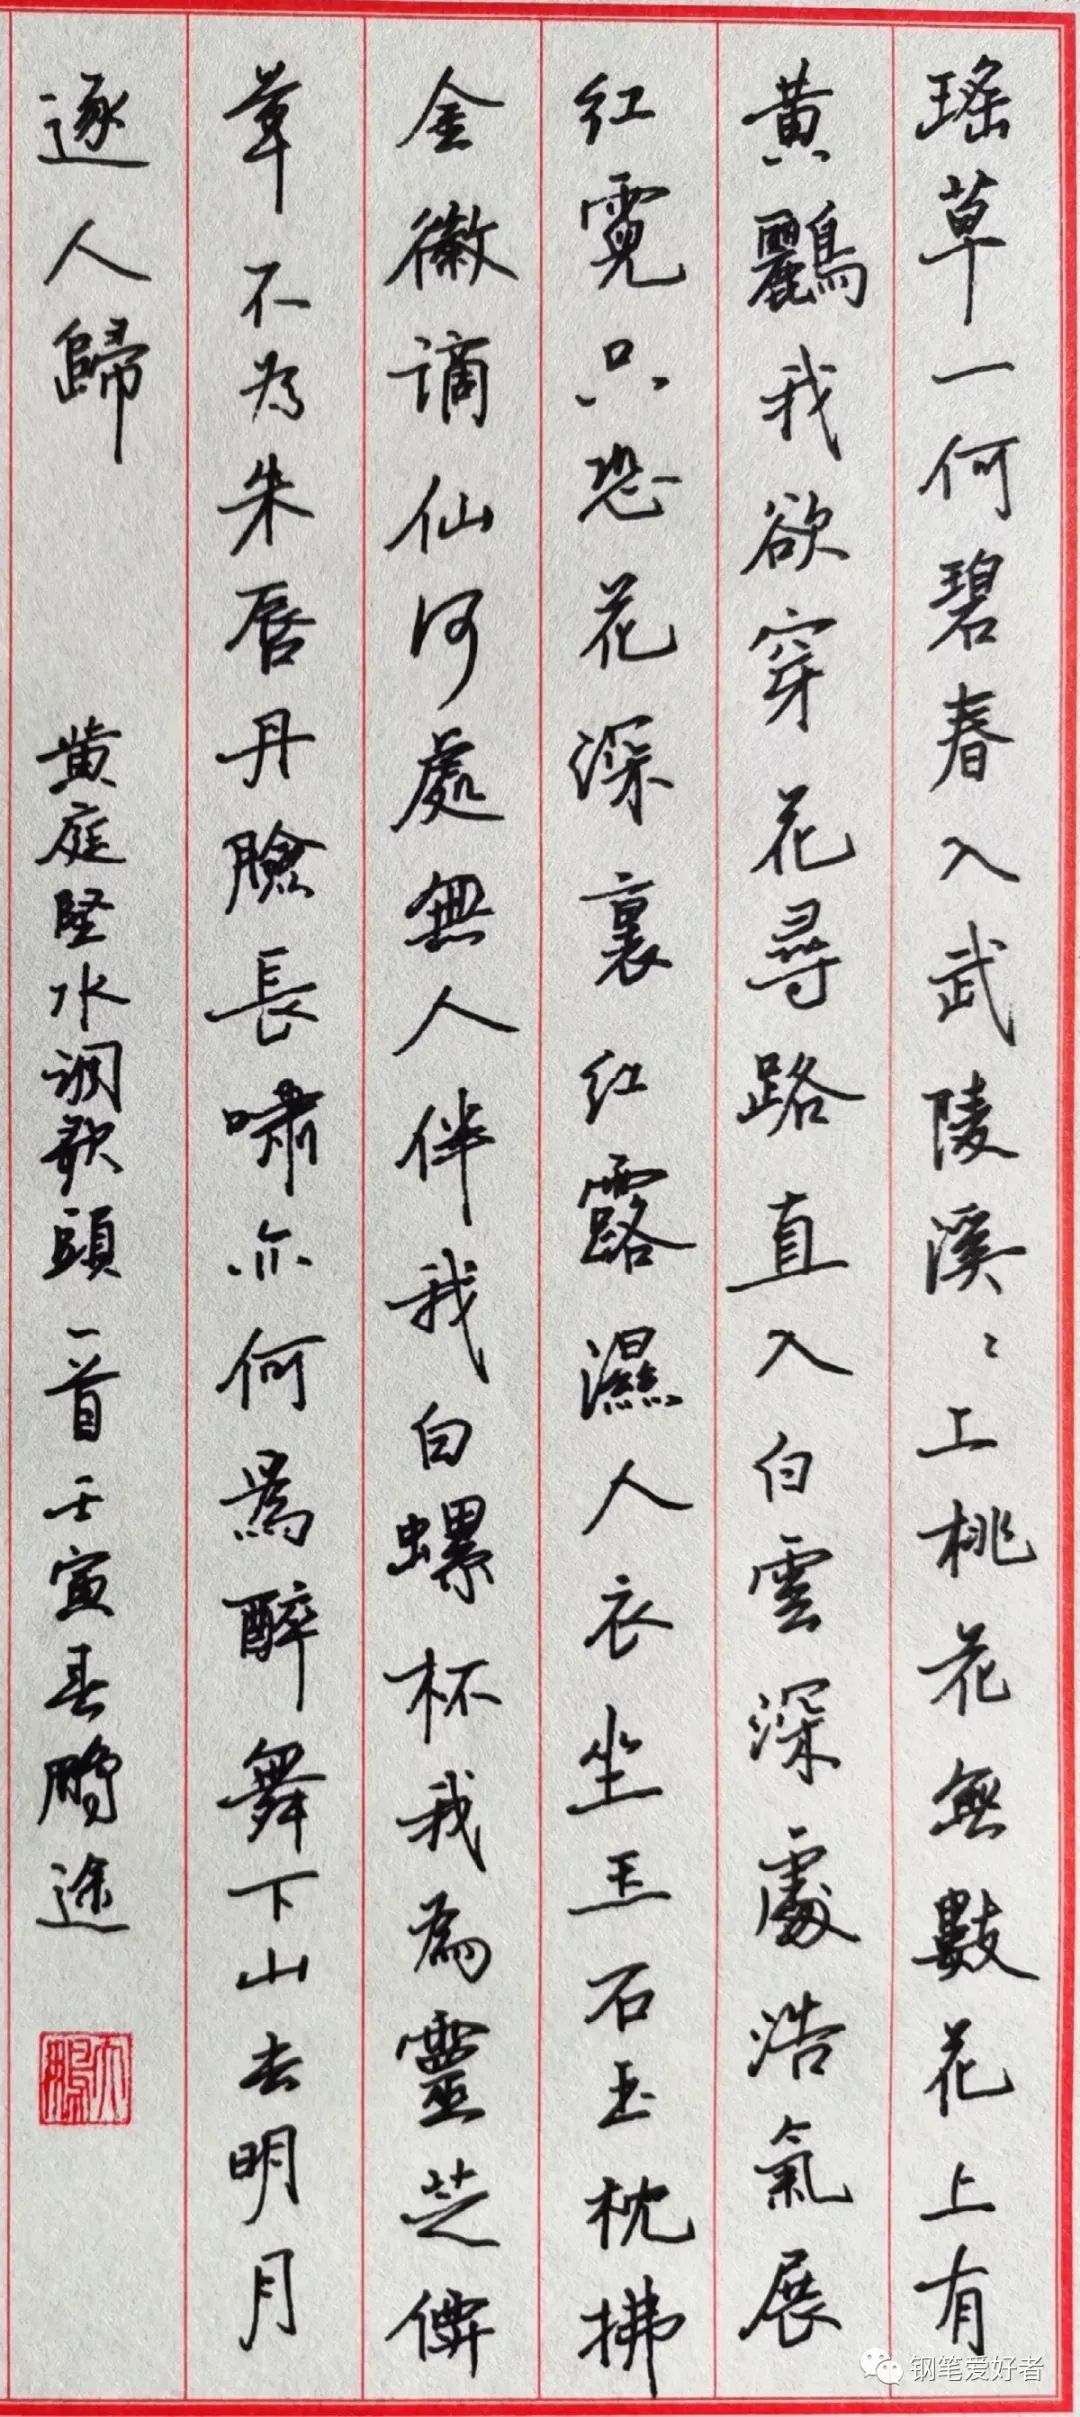 瑤草一何碧春入武陵溪〻上桃花無數花上有
黄鸝我欲穿花尋路直入白雲深處浩氣展
红霓只恐花深裏红露濕人衣坐玉石玉枕拂
金徽謫仙何處無人伴我白螺杯我為靈芝僊
草不为朱唇丹臉長嘯亦何爲醉舞下山去明月
逐人歸
黄庭堅水调歌頭一首壬寅春鵬途
大鵬
钢笔爱好者